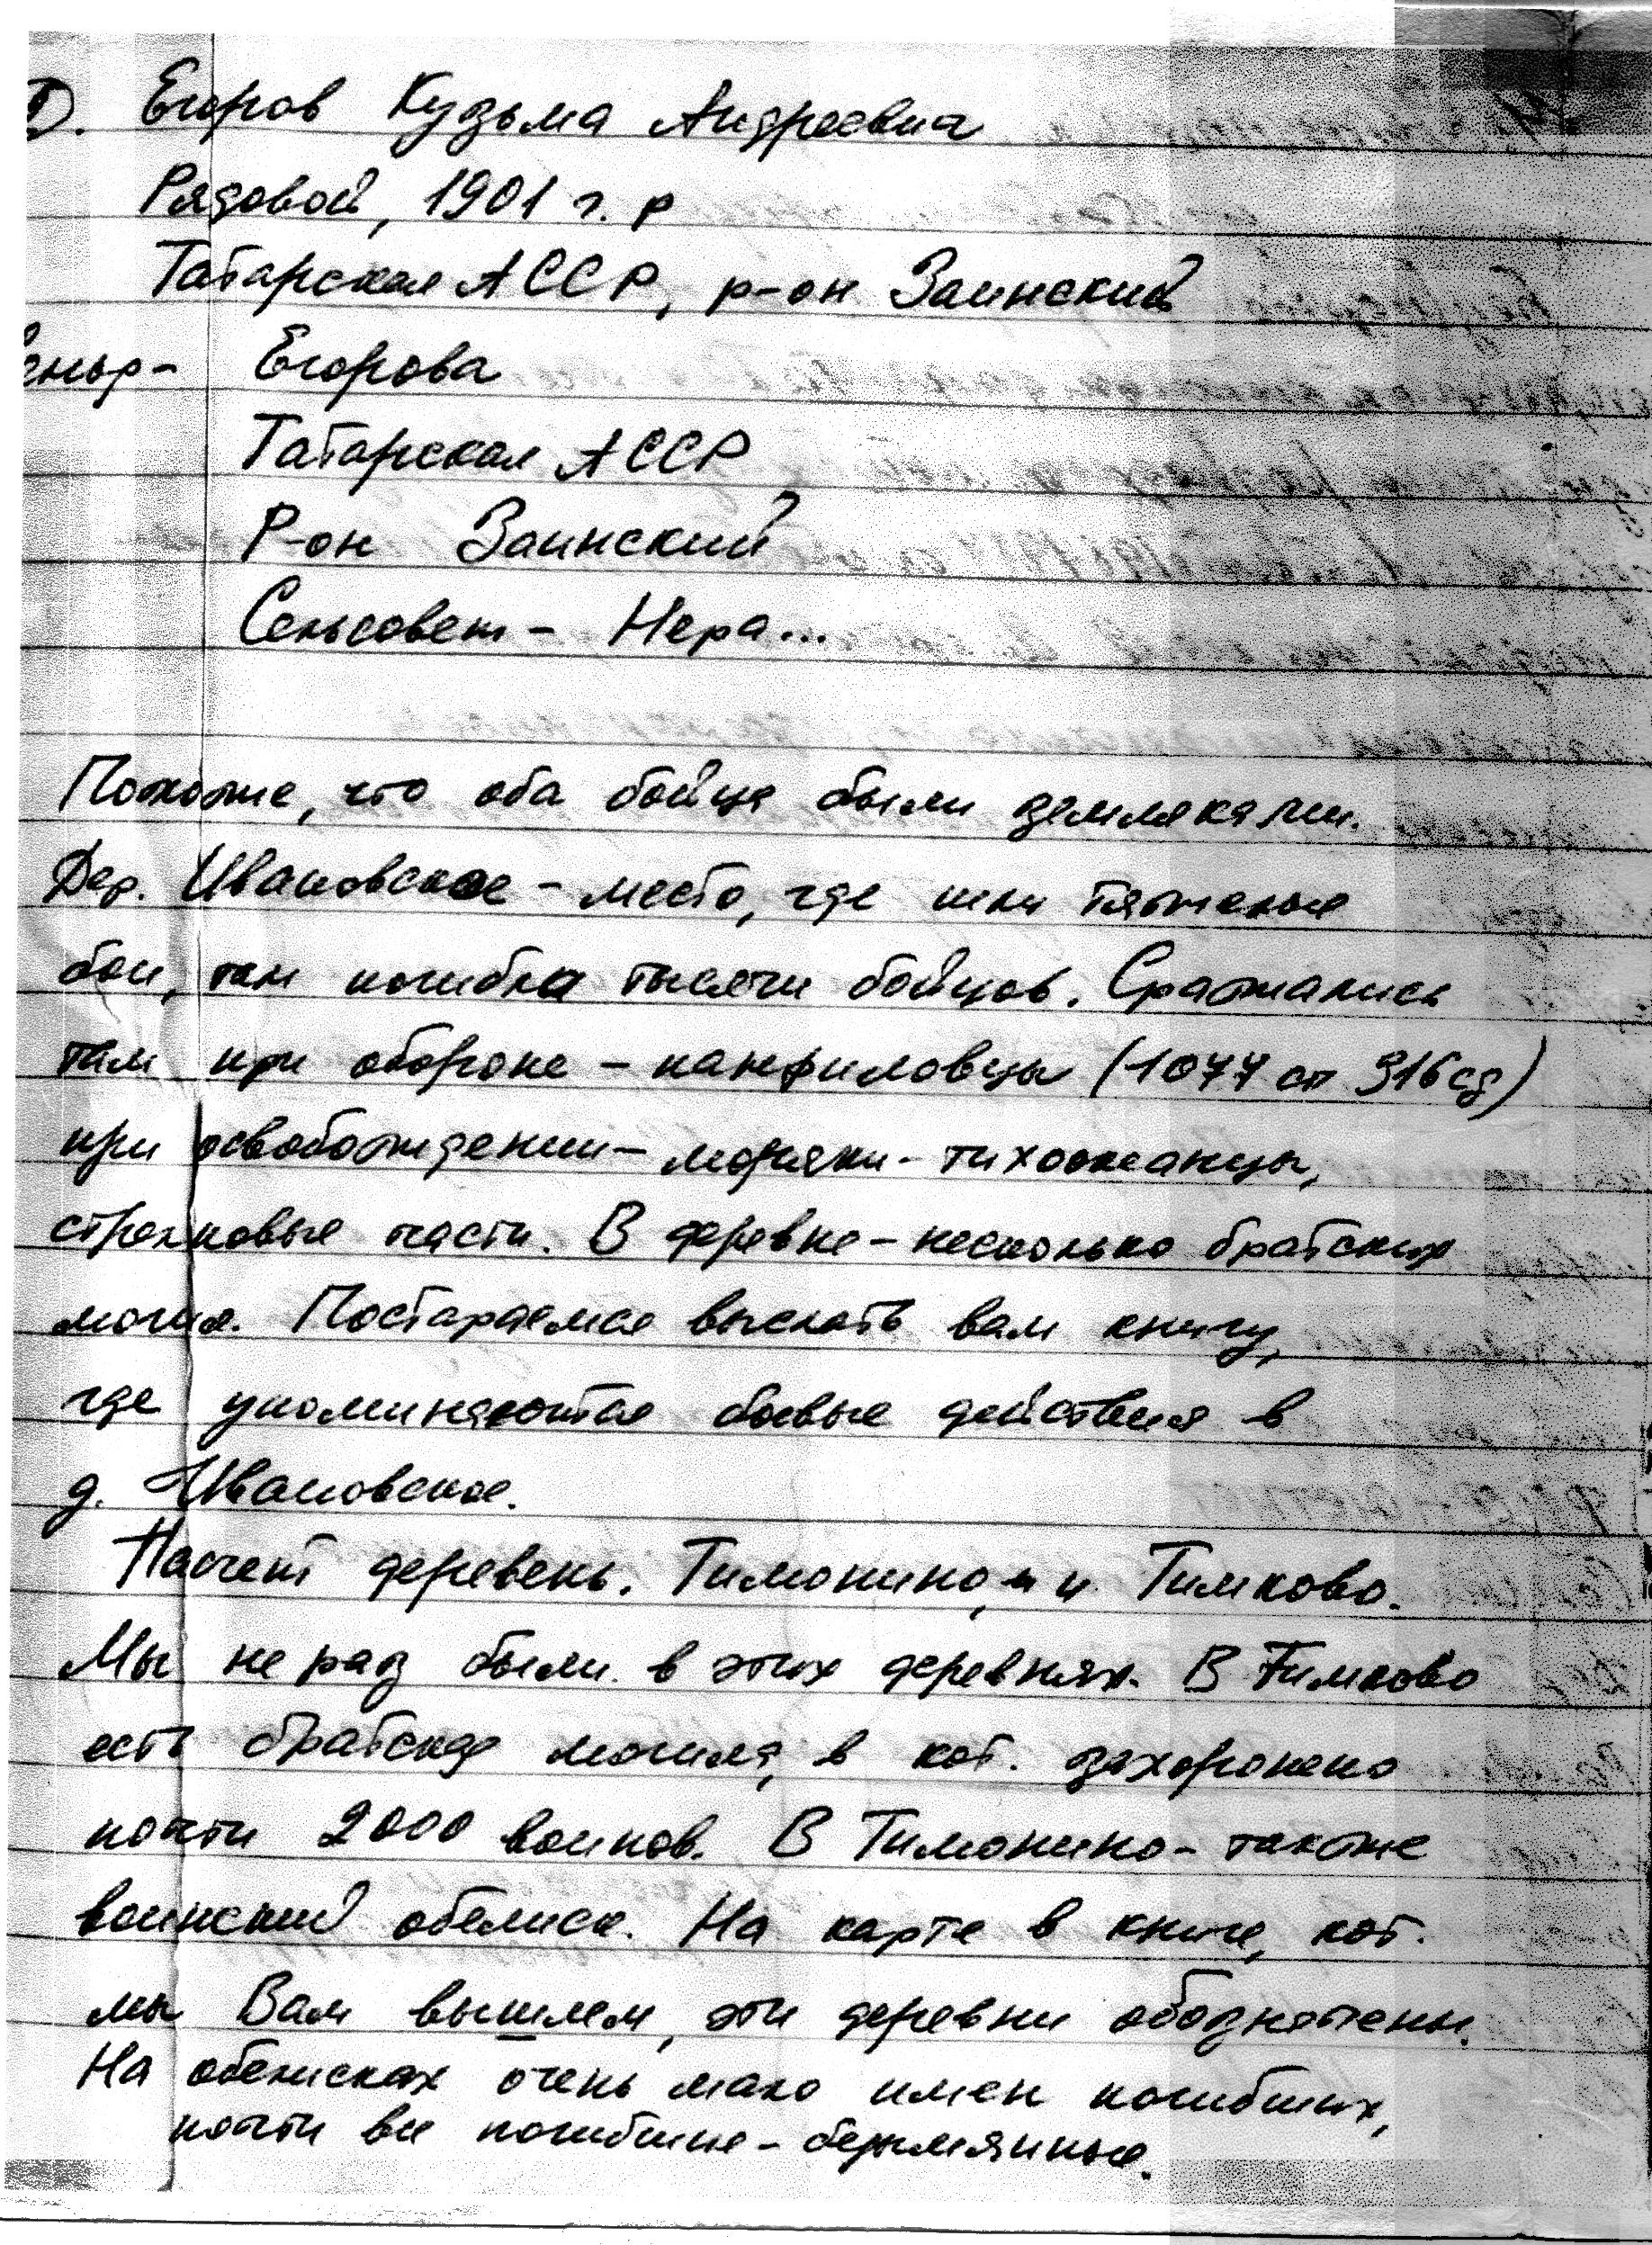 Егоров Кузьма Андреевич
Рядовой, 1901 г. р
Татарская АССР, р-он Заинский
Егорова
Татарская АССР
Р-он Заинский
Сельсовет - Нера...
Похоже, что оба бойца были земляками.
Дер. Ивановское - место, где шли тяжелые
бои, там погибла тысячи бойцов. Сражались
там при обороне - панфиловцы (1077 сп 316 сд)
при освобождении - моряки - тихоокеанцы,
стрелковые части. В деревне - несколько братских
могил. Постараемся выслать вам книгу,
где упоминяются боевые действия в
д. Ивановское.
Насчет деревень. Тимонино, и Тимково.
Мы не раз были в этих деревнях. В Тимково
есть братская могила, в кот. захоронено
почти 2000 воинов. В Тимонино - также
воинский обелиск. На карте в книге, кот.
мы Вам вышлем, эти деревни обозначены.
На обелисках очень мало имен погибших,
почти все погибшие - безымянные.